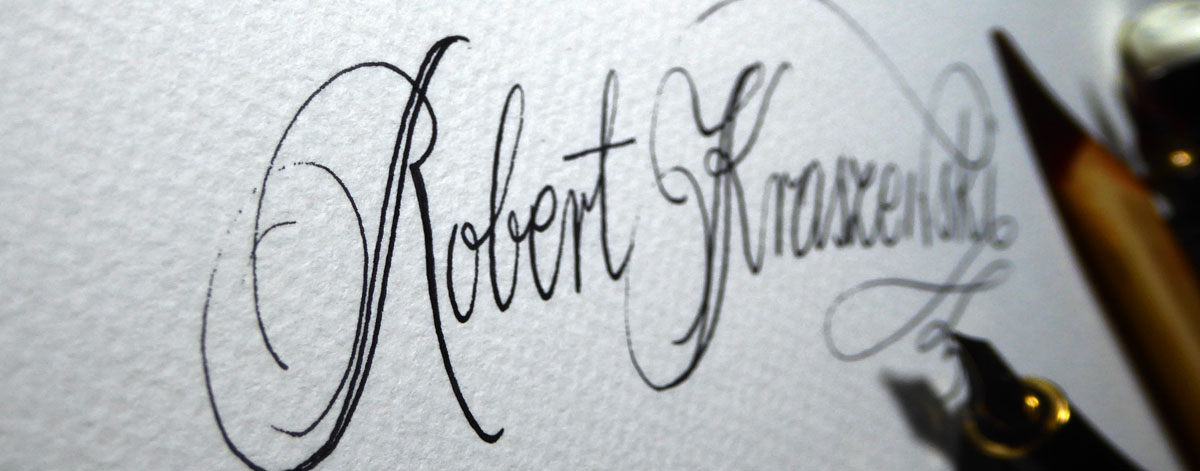 Robert Kraszewski